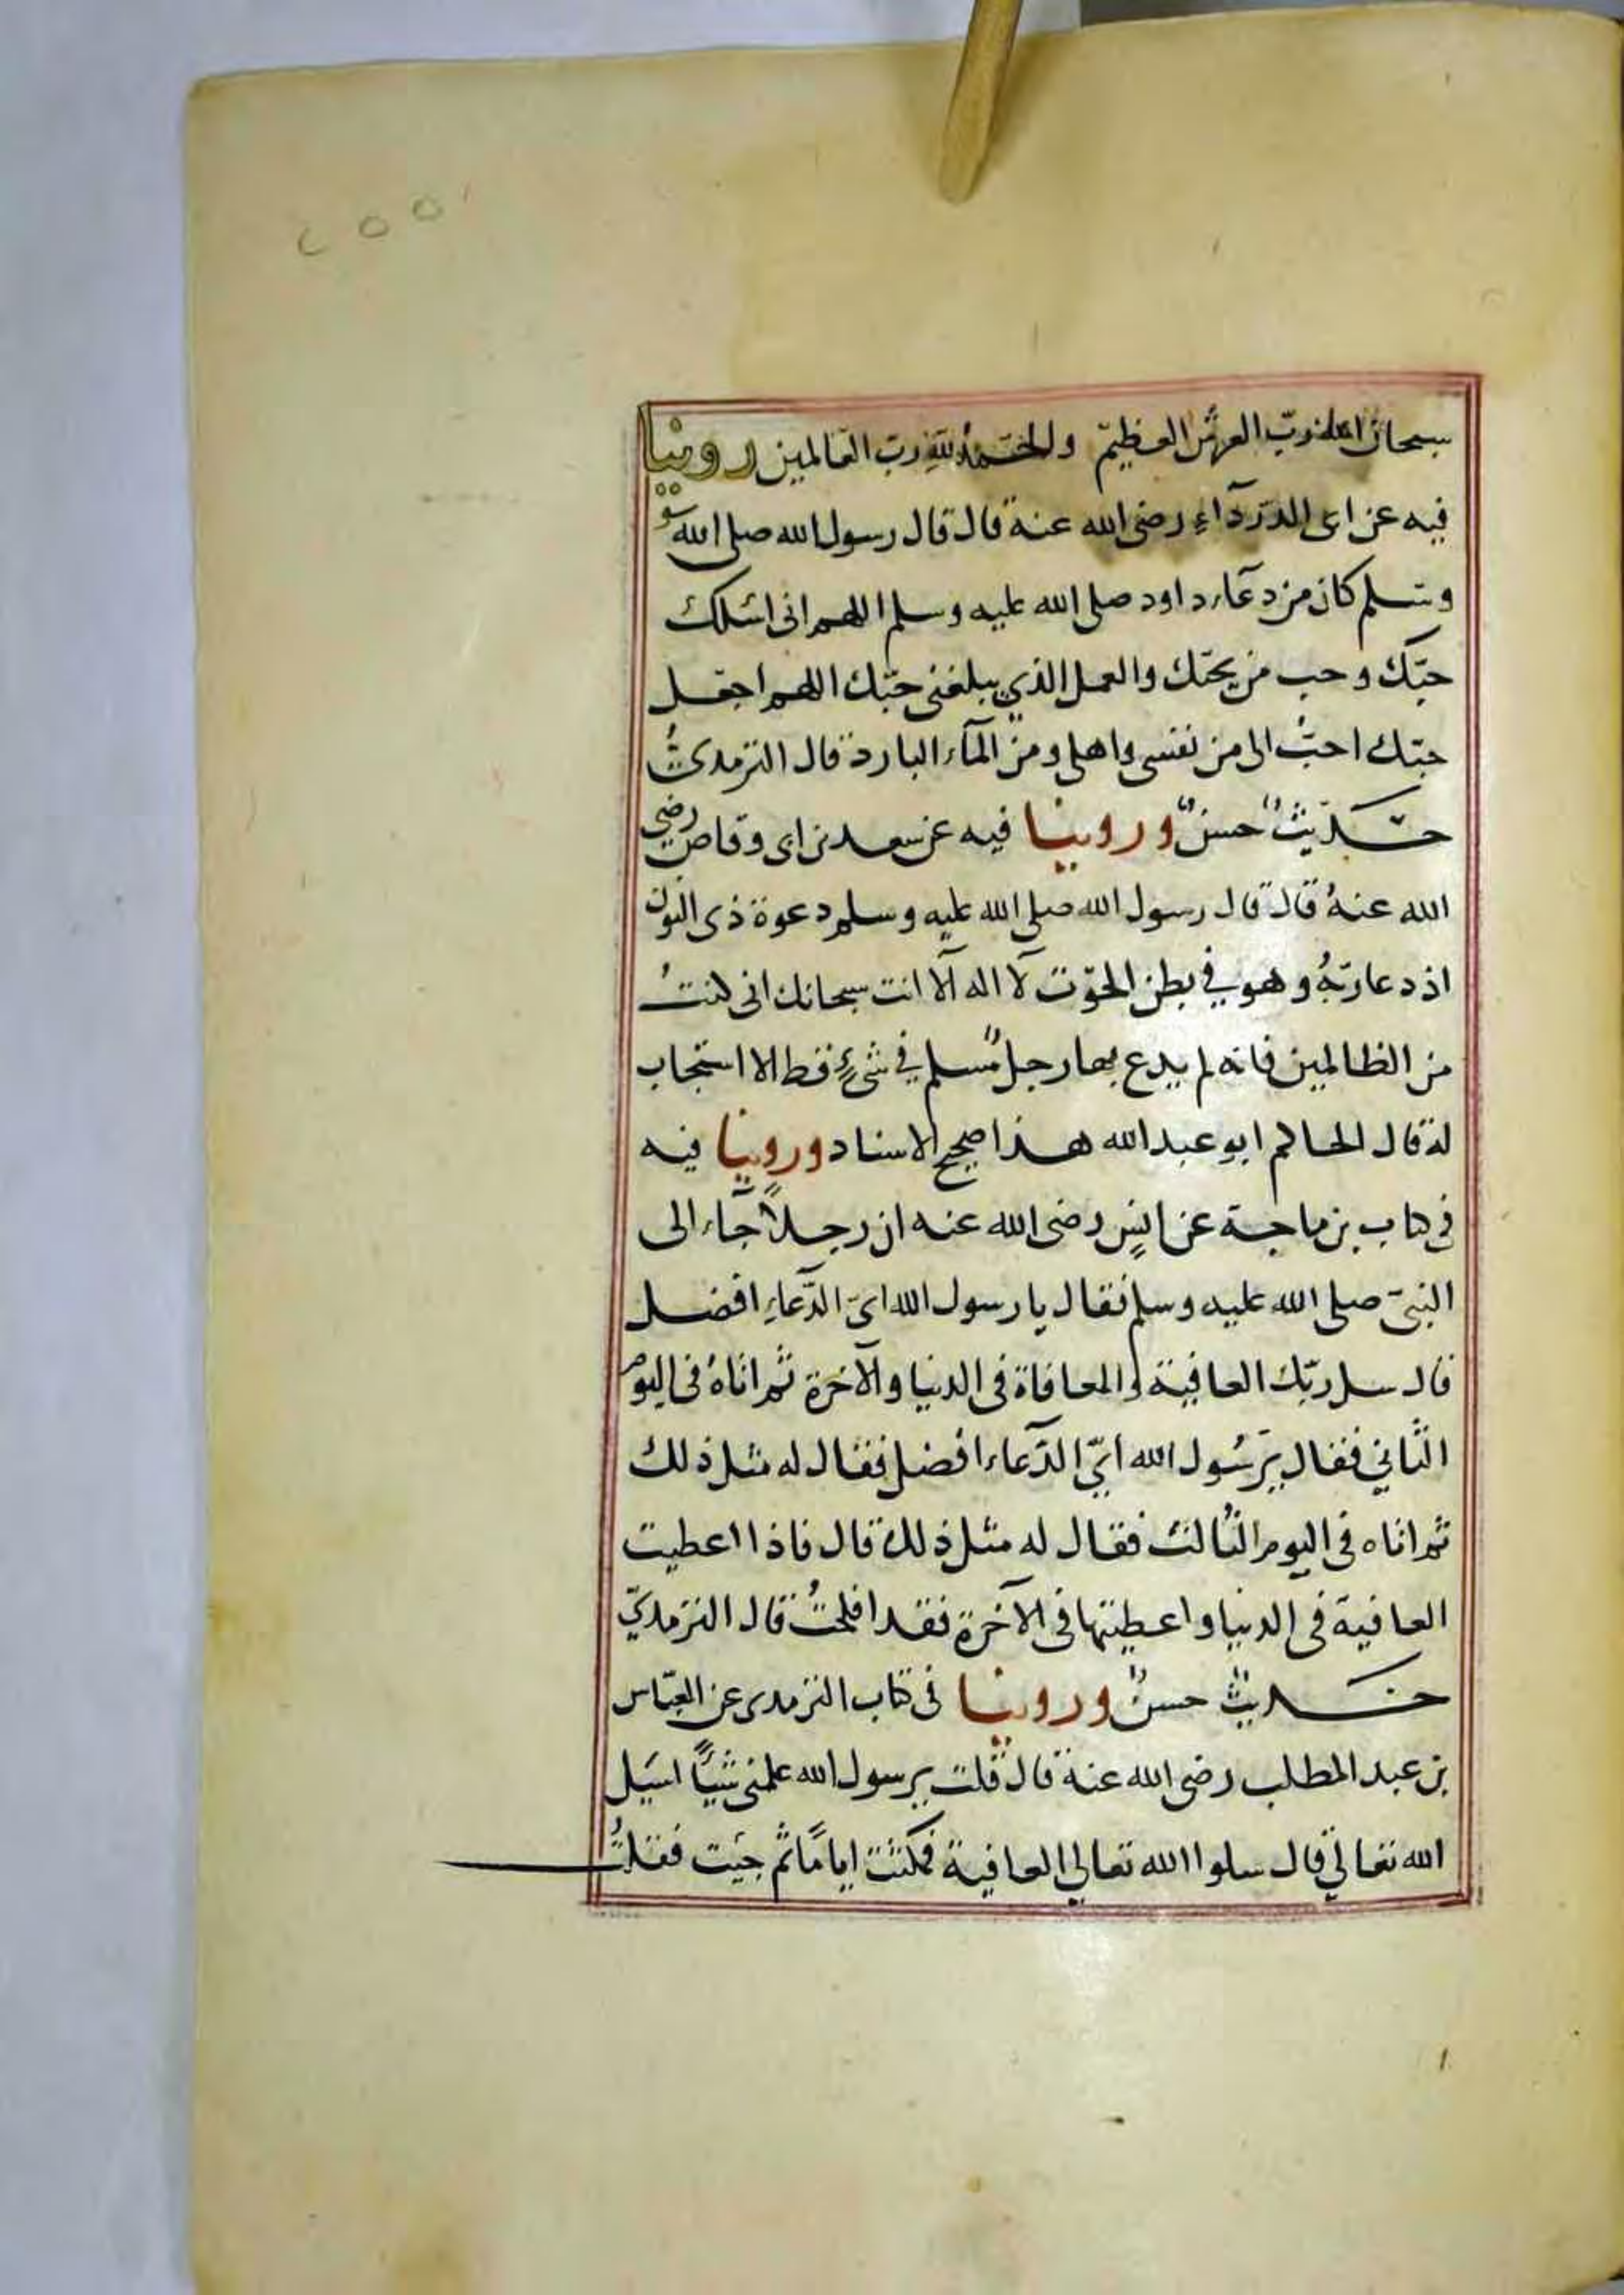 ٢٥٥
سبحان الله رب العرش العظيم والحمد لله رب العالمين روينا
فيه عن ابى الدردآء رضى الله عنه قال قال رسول الله صلى الله
وسلم كان من دعآء داود صلى الله عليه وسلم اللهم انى اسئلك
حبّك وحب من يحبّك والعمل الذي يبلغنى حبّك اللهم اجعل
حبّك احبّ الى من نفسى واهلى ومن المآء البارد قال الترمدىّ
حديثٌ حسنٌ وروينا فيه عن سعد بن ابى وقاص رضى
الله عنهُ قال قال رسول الله صلى الله عليه وسلم دعوة ذى النون
اذ دعا ربّهُ وهو في بطن الحوت لآ اله الّآ انت سبحانك انى كنتُ
من الظالمين فانه لم يدع بها رجلٌ مُسلم في شىءٍ قط الا استجاب
له قال الحاكم ابو عبد الله هذا صحيح الاسناد وروينا فيه
فى كتاب بن ماجة عن انسٍ رضى الله عنه ان رجلاً جآء الى
النبىّ صلى الله عليه وسلم فقال يا رسول الله اىّ الدّعآءِ افضل
قال سل ربّك العافية والمعافاة فى الدنيا والآخرة ثم اتاهُ فى اليوم
الثّاني فقال يرَسُول الله ايّ الدّعآء افضل فقال له مثل ذلك
ثم اتاه فى اليوم الثالث فقال له مثل ذلك قال فاذا اعطيت
العافية فى الدنيا واعطيتها فى الآخرة فقد افلحتُ قال الترمدىّ
حديثٌ حسنٌ وروينا فى كتاب الترمدى عن العبّاس
بن عبد المطلب رضى الله عنه قال قلت يرسول الله علمنى شيئاً اسَيل
الله تعالى قال سلوا الله تعالى العافية فمكثت اياماً ثم جيَت فقلتُ